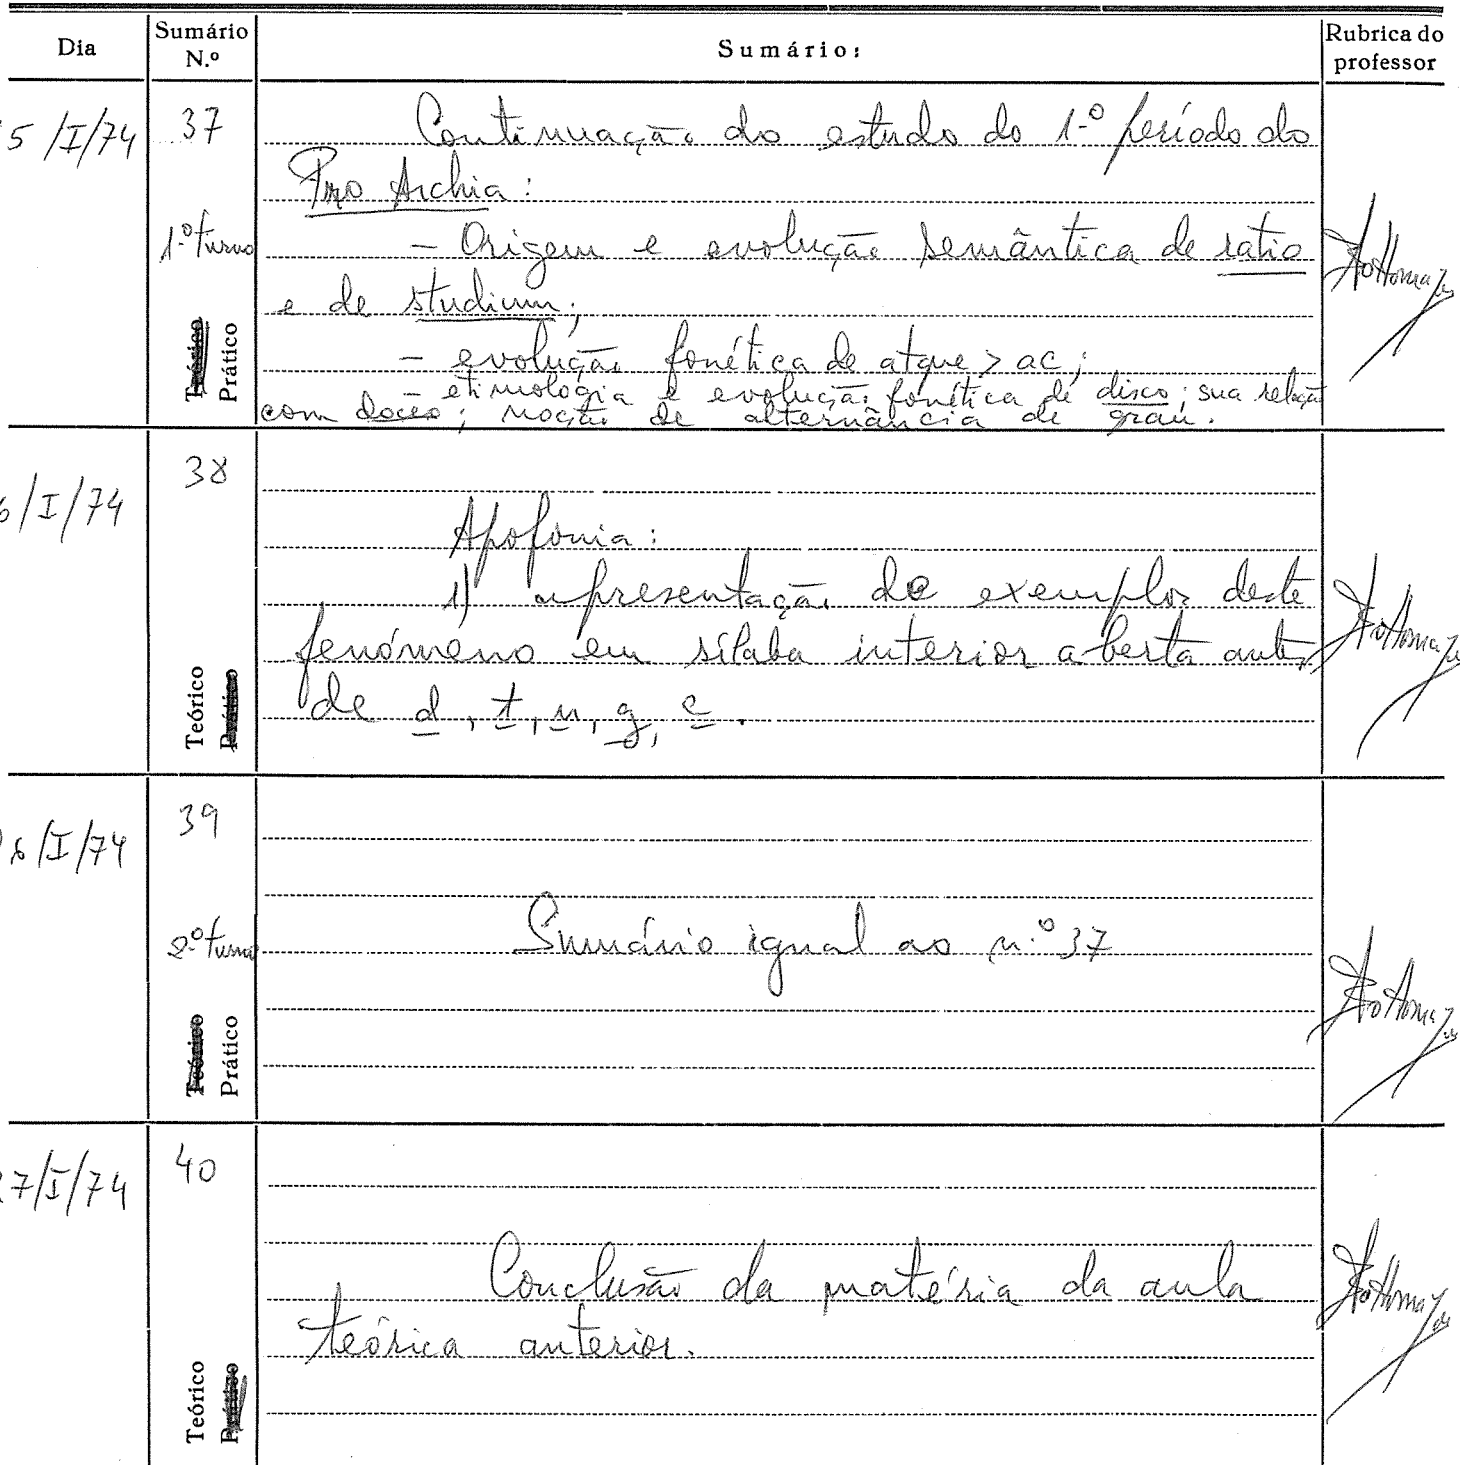 Dia
Sumário N.º
Sumário:
Rubrica do professor
5/I/74
37
1.º turno
Teórico
Prático
Continuação do estudo do 1.º período do
Pro Archia:
– Origem e evolução semântica de ratio
e de studium;
– evolução fonética de atque > ac;
– etimologia e evolução fonética de disco; sua relação
com doceo; noção de alternância de grau.
6/I/74
38
Teórico
Prático
Apofonia:
1) apresentação de exemplos deste
fenómeno em sílaba interior aberta antes
de d, t, n, g, c.
6/I/74
39
2.º turno
Teórico
Prático
Sumário igual ao n.º 37
27/I/74
40
Teórico
Prático
Conclusão da matéria da aula
teórica anterior.